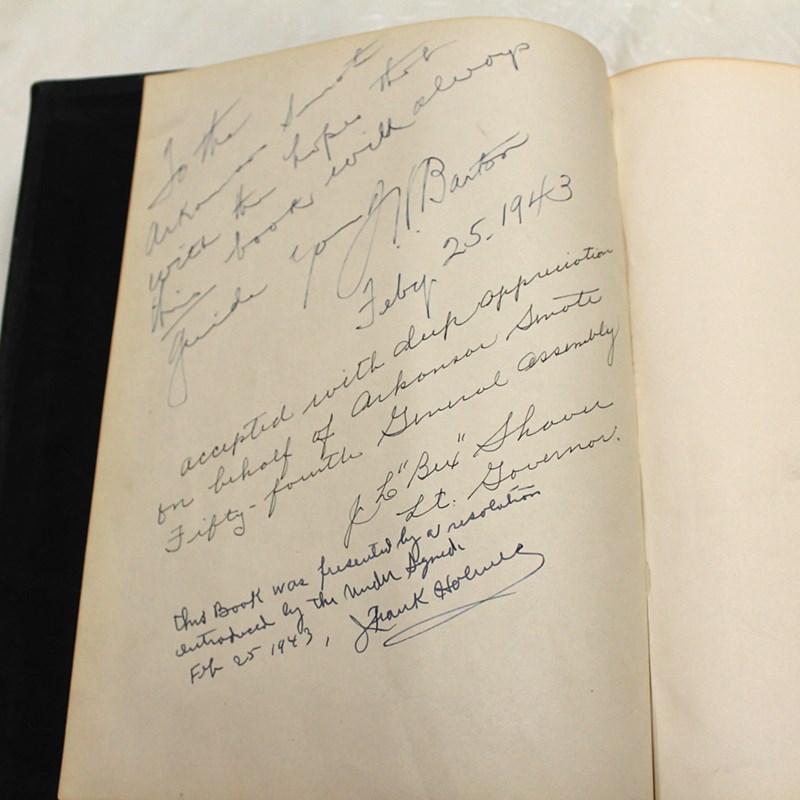 To the
Arkansas Senate
with the hopes that
this book will always
guide you
J. H. Barton
Feby. 25-1943
accepted with deep appreciation
on behalf of Arkansas Senate
Fifty-fourth General Assembly
J L "Bex" Shaver
Lt. Governor.
This Book was presented by a resolution
introduced by the Under Signed.
Feb 25 1943, Frank Holmes